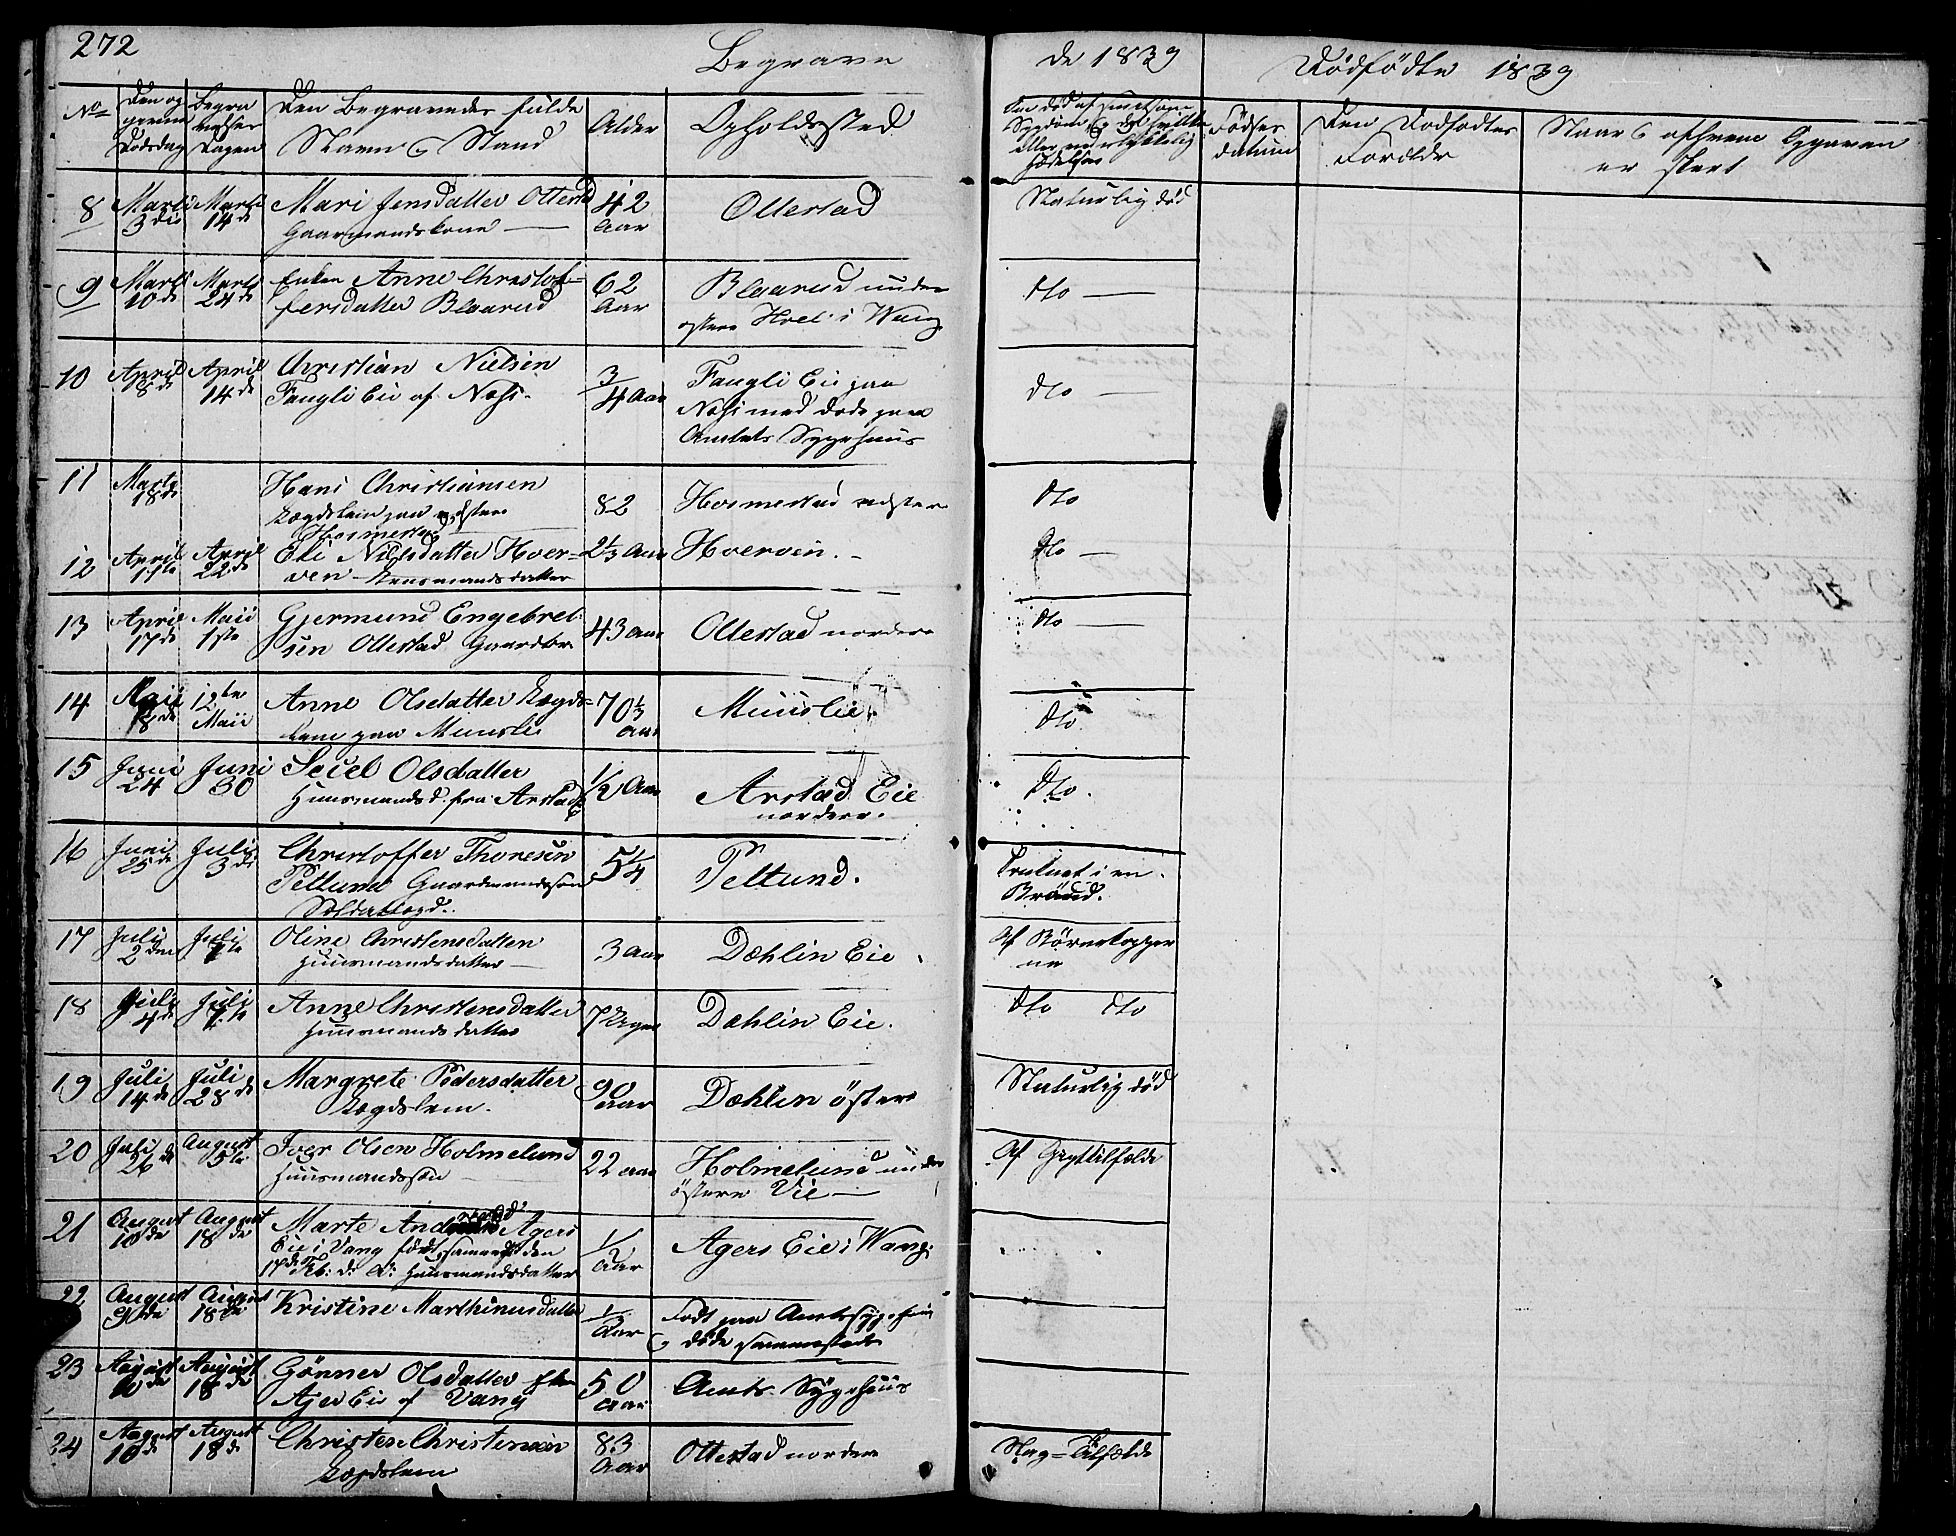 272
Begrave
de 1839
Dødfödte 1839
No
Den og
Dødsdag
Begra
velses
Dagen
Den Begravedes fulde
Navn og Stand
Alder
Opholdssted
Fødsels
datum
Den Dødfødtes
Forældre
8
Marti
3die
Marti
14de
Mari Jensdatter Ottestad
Gaarmandskone
42
Aar
Ottestad
Naturlig død
9
Marti
10de
Marti
24de
Enken Anne Christof=
fersdatter Blaarud
62
Aar
Blaarud under
østere Hoel i Wang
dto
10
April
8de
April
14de
Christian Nielsen
Fangli Eie af Næss
3/4 Aar
Fangli Eie paa
Næss med døde paa
Amtets Sygehuus
dto
11
Marti
18de
Hans Christiansen
Lægdslem paa vestere
Hosmestad
82
Hosmestad vestere
dto
12
April
11te
April
22de
Eli Nilsdatter Hoer=
ven
2 1/3 Aar
Hoerven
dto
13
April
17de
Maii
1ste
Gjermund Engebret
sen Ottestad Gaardbr
43 Aar
Ottestad nordere
dto
14
Maii
8de
12te
Maii
Anne Olsdatter Lægds=
lem paa Muuslie
70 1/3
Aar
Muuslie
dto
15
Juni
24
Juni
30
Seiel Olsdatter
Huusmandsd. fra Arstad
1/2 Aar
Arstad Eie
nordere.
dto.
16
Juni
25de
Juli
3die
Christoffer Thoresen
Pellund Gaardmandssøn
5 1/4
Pellund.
Druknet i en
Brönd.
17
Juli
2den
Juli
7te
Oline Christensdatter
Huusmandsdatter
3 Aar
Dæhlin Eie
Af Börnekopper
ne
18
Juli
4de
Juli
7te
Anne Christensdatter
Huusmandsdatter
7 Uger
Dæhlin Eie.
dto dto
19
Juli
14de
Juli
28de
Margrete Pedersdatter
Lægdslem.
90
aar
Dæhlin östere
Naturlig död
20
Juli
26de
August
5te
Iver Olsen Holmelund
Huusmandssøn
22 aar
Holmelund under
östere Vie
Af Gigttilfælde
21
August
10de
August
18de
Marte Andersd: Agers
Eie i Vang født sammesteds den
17de Feb: d: A: Huusmandsdatter
1/2
Aar
Agers Eie i Wang
22
August
August
18de
Kristine Marthinusdatter
Aar
Født paa Amtssygehuus
og døde sammesteds
23
August
10de
August
18de
Gönner Olsdatter
Ager Eie af Vang
50
aar
Amts Sygehuus
24
August
10de
August
18de
Christen Christensen
Lægdslem
83
Aar
Ottestad nordere
Slag=Tilfælde